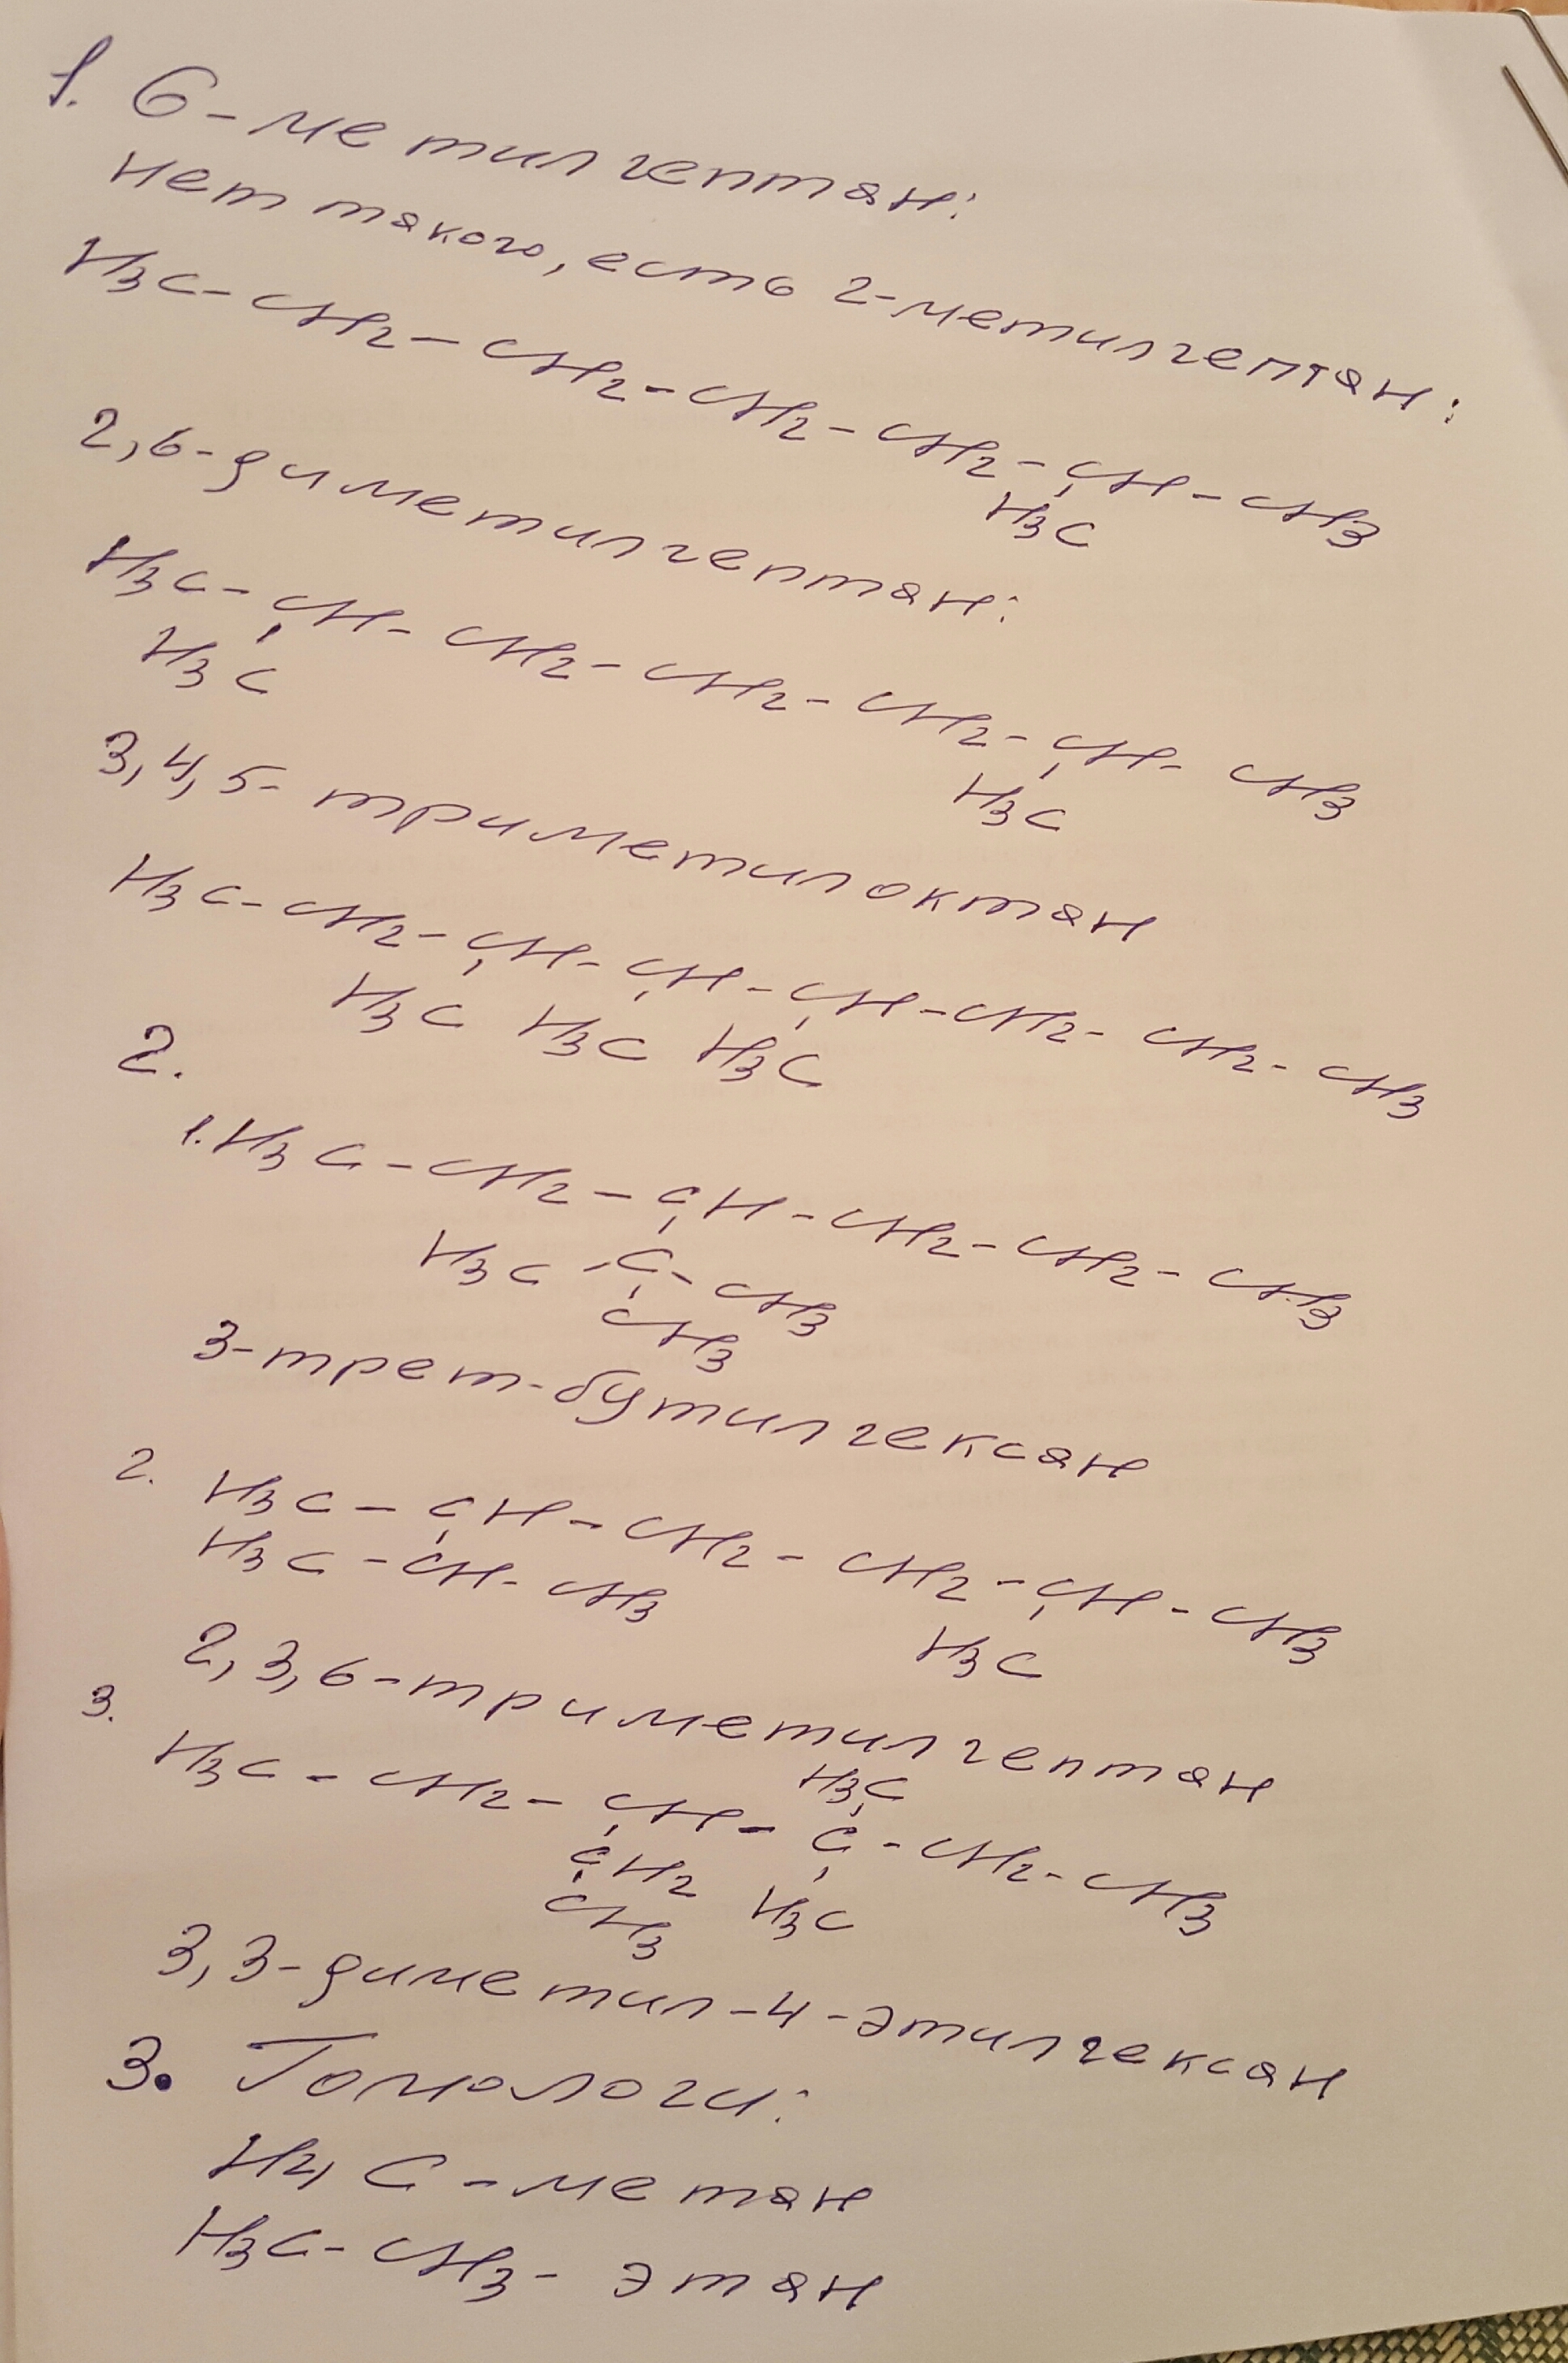 1. 6-метилгептан:
нет такого, есть 2-метилгептан:
H3C-CH2-CH2-CH2-CH2-CH-CH3
H3C
2,6-диметилгептан:
H3C-CH-CH2-CH2-CH2-CH-CH3
H3C H3C
3,4,5-триметилоктан
H3C-CH2-CH-CH-CH-CH2-CH2-CH3
H3C H3C H3C
2.
1. H3C-CH2-CH-CH2-CH2-CH3
H3C-C-CH3
CH3
3-трет-бутилгексан
2. H3C-CH-CH2-CH2-CH-CH3
H3C-CH-CH3 H3C
2,3,6-триметилгептан
3. H3C
H3C-CH2-CH-C-CH2-CH3
CH2 H3C
CH3
3,3-диметил-4-этилгексан
3. Гомологи:
H4C-метан
H3C-CH3-этан